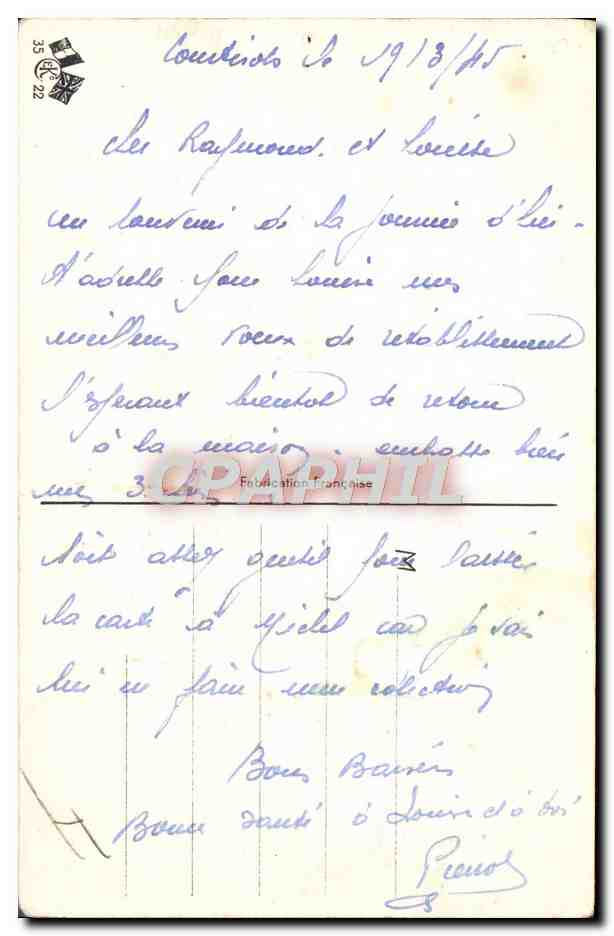 35 EKO 22
le 19/3/45
Cher Raymond. et Louise
un souvenir de la journée d'hier -
T'adresse pour Louise mes
meilleurs voeux de rétablissement
l'espérant bientot de retour
à la maison. embrasse bien
mes 3
CPAPHIL
Fabrication Française
soit assez gentil pour laisser
la carte à Michel car je vais
lui en faire une collection
Bons Baisers
Bonne Santé à Louise et à toi
Pierrot